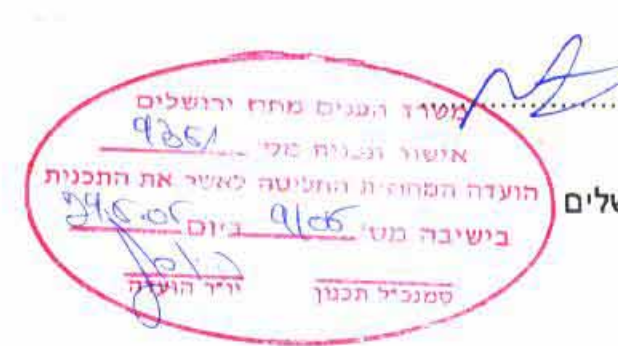 משרד הפנים מחוז ירושלים
אישור תכנית מס' 9361
הועדה המחוזית החליטה לאשר את התכנית
בישיבה מס' 9/05 ביום
סמנכ"ל תכנון יו"ר הועדה
שלים